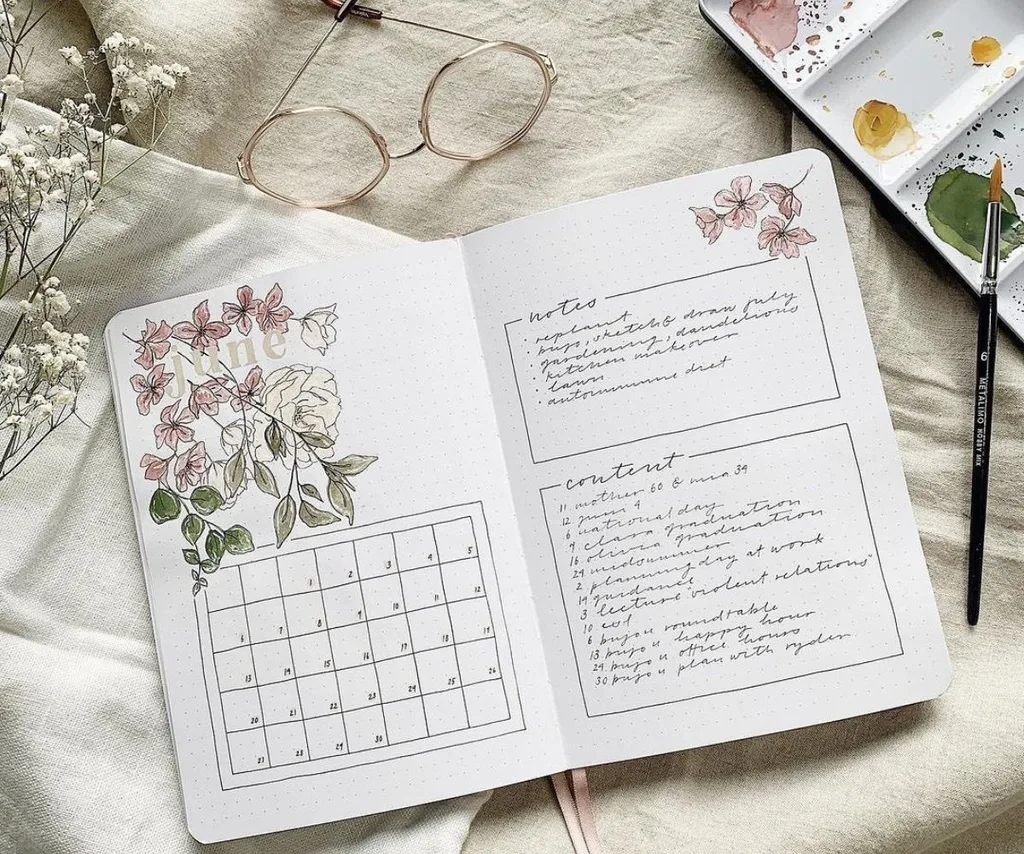 june
1 2 3 4 5
6 7 8 9 10 11 12
13 14 15 16 17 18 19
20 21 22 23 24 25 26
27 28 29 30
notes
· replant
· bujo, sketch & draw july
· gardening, dandelions
· kitchen makeover
· lawn
· autoimmune diet
content
11 mother 60 & 39
12
6 national day
9 graduation
16 olivia graduation
24 midsummer
2 planning day at work
14 guidance
3 lecture "violent relations"
10
6 bujo u roundtable
13 bujo u happy hour
29 bujo u office hours
30 bujo u plan with ryder
6 METALIMO HOBBY MIX